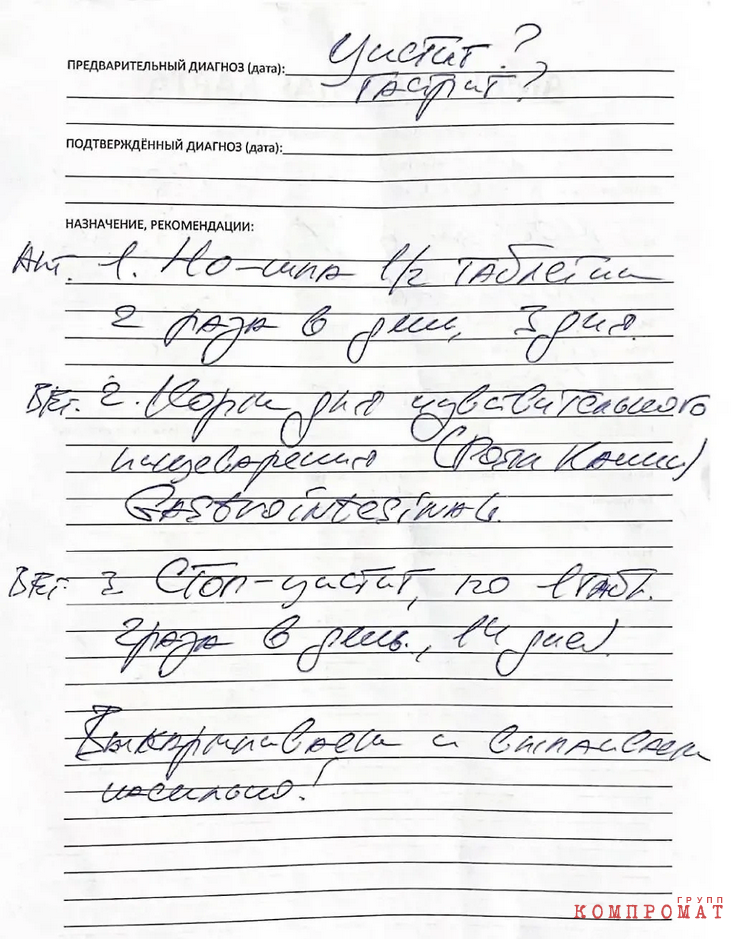 ПРЕДВАРИТЕЛЬНЫЙ ДИАГНОЗ (дата): Цистит?
Гастрит?
ПОДТВЕРЖДЁННЫЙ ДИАГНОЗ (дата):
НАЗНАЧЕНИЕ, РЕКОМЕНДАЦИИ:
Апт. 1. Но-шпа 1/2 таблетки
2 раза в день, 3 дня.
Вет. 2. Корм для чувствительного
пищеварения (Роял Канин)
Gastrointestinal.
Вет. 3 Стоп-цистит, по 1 табл.
2 раза в день, 14 дней.
Выкармливаем и выпаиваем
насильно!
ГРУПП
КОМПРОМАТ